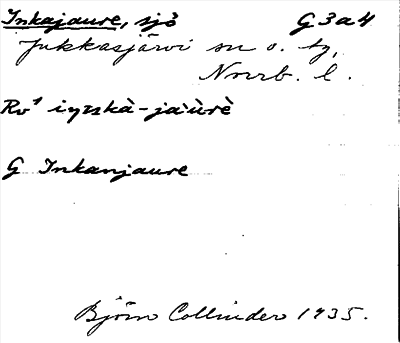 Inkajaure, sjö G3a4
Jukkasjärvi sn o. tg,
Norrb. l.
Rv¹
G Inkanjaure
Björn Collinder 1935.